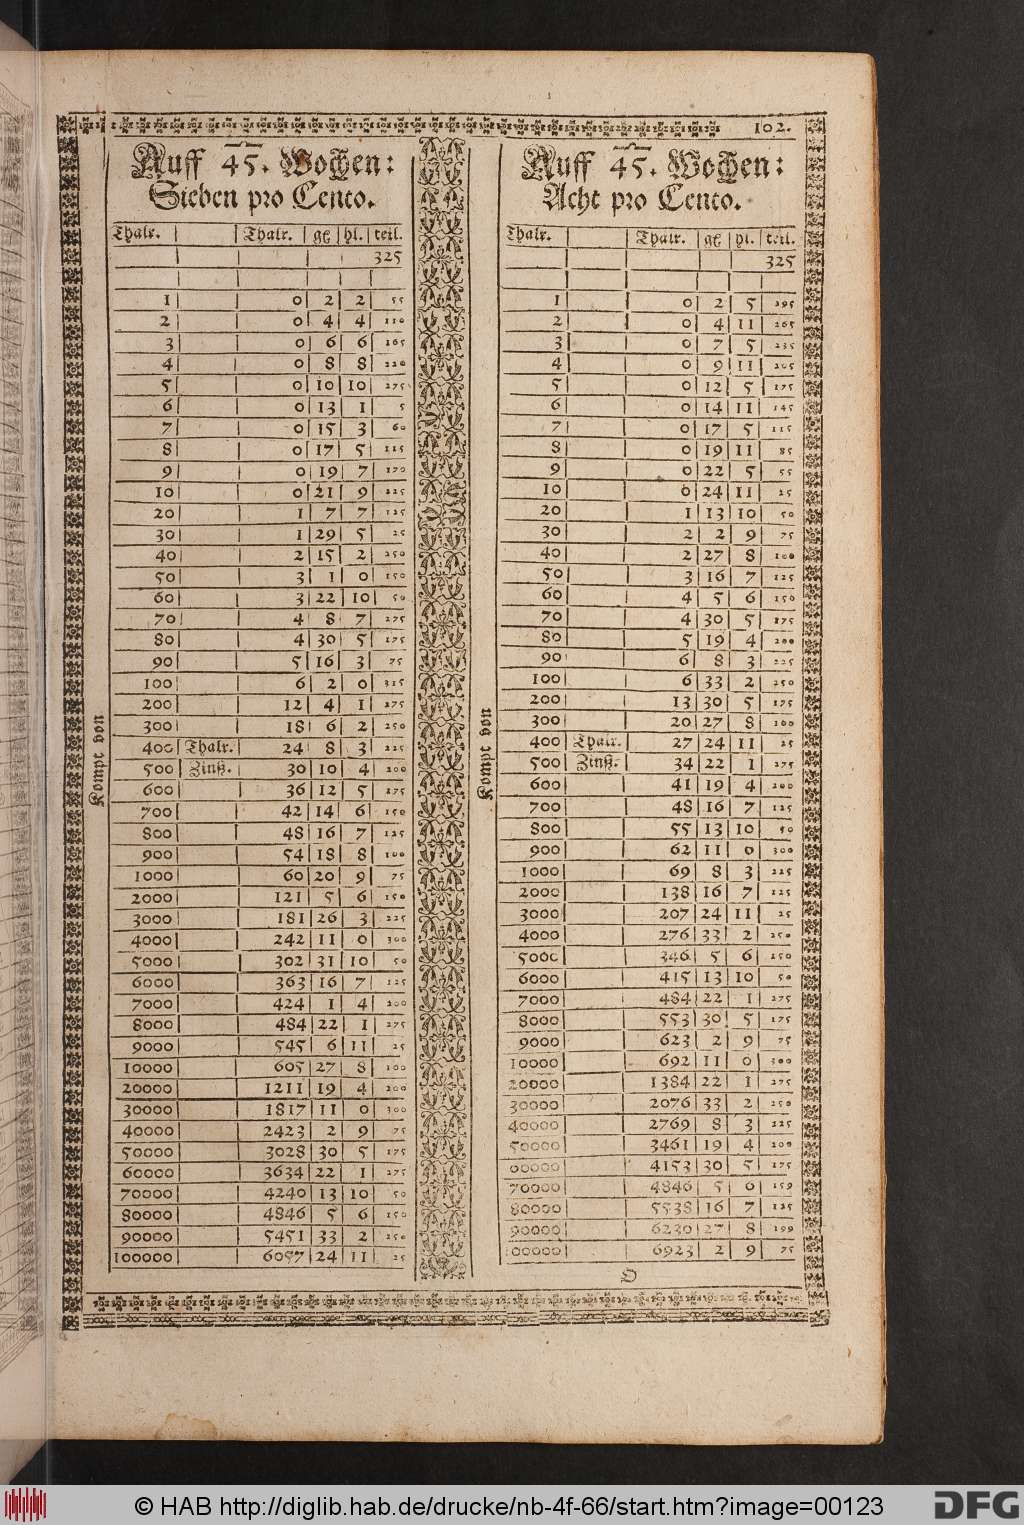 102.
Auff 45. Wochen:
Sieben pro Cento.
Thalr. Thalr. gℓ hl. teil.
325
1 0 2 2 55
2 0 4 4 110
3 0 6 6 165
4 0 8 8 220
5 0 10 10 275
6 0 13 1 5
7 0 15 3 60
8 0 17 5 115
9 0 19 7 170
10 0 21 9 225
20 1 7 7 125
30 1 29 5 25
40 2 15 2 250
50 3 1 0 150
60 3 22 10 50
70 4 8 7 275
80 4 30 5 175
90 5 16 3 75
100 6 2 0 315
200 12 4 1 275
300 18 6 2 250
400 Thalr. 24 8 3 225
500 Zinß. 30 10 4 200
600 36 12 5 175
700 42 14 6 150
800 48 16 7 125
900 54 18 8 100
1000 60 20 9 75
2000 121 5 6 150
3000 181 26 3 225
4000 242 11 0 300
5000 302 31 10 50
6000 363 16 7 125
7000 424 1 4 200
8000 484 22 1 275
9000 545 6 11 25
10000 605 27 8 100
20000 1211 19 4 200
30000 1817 11 0 300
40000 2423 2 9 75
50000 3028 30 5 175
60000 3634 22 1 275
70000 4240 13 10 50
80000 4846 5 6 150
90000 5451 33 2 250
100000 6057 24 11 25
Kompt von
Auff 45. Wochen:
Acht pro Cento.
Thalr. Thalr. gℓ hl. teil.
325
1 0 2 5 295
2 0 4 11 265
3 0 7 5 235
4 0 9 11 205
5 0 12 5 175
6 0 14 11 145
7 0 17 5 115
8 0 19 11 85
9 0 22 5 55
10 0 24 11 25
20 1 13 10 50
30 2 2 9 75
40 2 27 8 100
50 3 16 7 125
60 4 5 6 150
70 4 30 5 175
80 5 19 4 200
90 6 8 3 225
100 6 33 2 250
200 13 30 5 175
300 20 27 8 100
400 Thalr. 27 24 11 25
500 Zinß. 34 22 1 275
600 41 19 4 200
700 48 16 7 125
800 55 13 10 50
900 62 11 0 300
1000 69 8 3 225
2000 138 16 7 125
3000 207 24 11 25
4000 276 33 2 250
5000 346 5 6 150
6000 415 13 10 50
7000 484 22 1 275
8000 553 30 5 175
9000 623 2 9 75
10000 692 11 0 300
20000 1384 22 1 275
30000 2076 33 2 250
40000 2769 8 3 225
50000 3461 19 4 200
00000 4153 30 5 175
70000 4846 5 6 159
80000 5538 16 7 125
90000 6230 27 8 199
100000 6923 2 9 75
Kompt von
O
© HAB http://diglib.hab.de/drucke/nb-4f-66/start.htm?image=00123
DFG